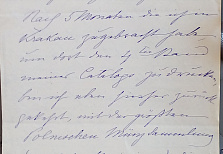 Nach 5 Monaten die ich in
Krakau zugebracht habe
um dort den 4ten Band
meiner Cataloge zu drucken
bin ich eben zurück
gekehrt, mit der größten
Polnischen Münzsammlung